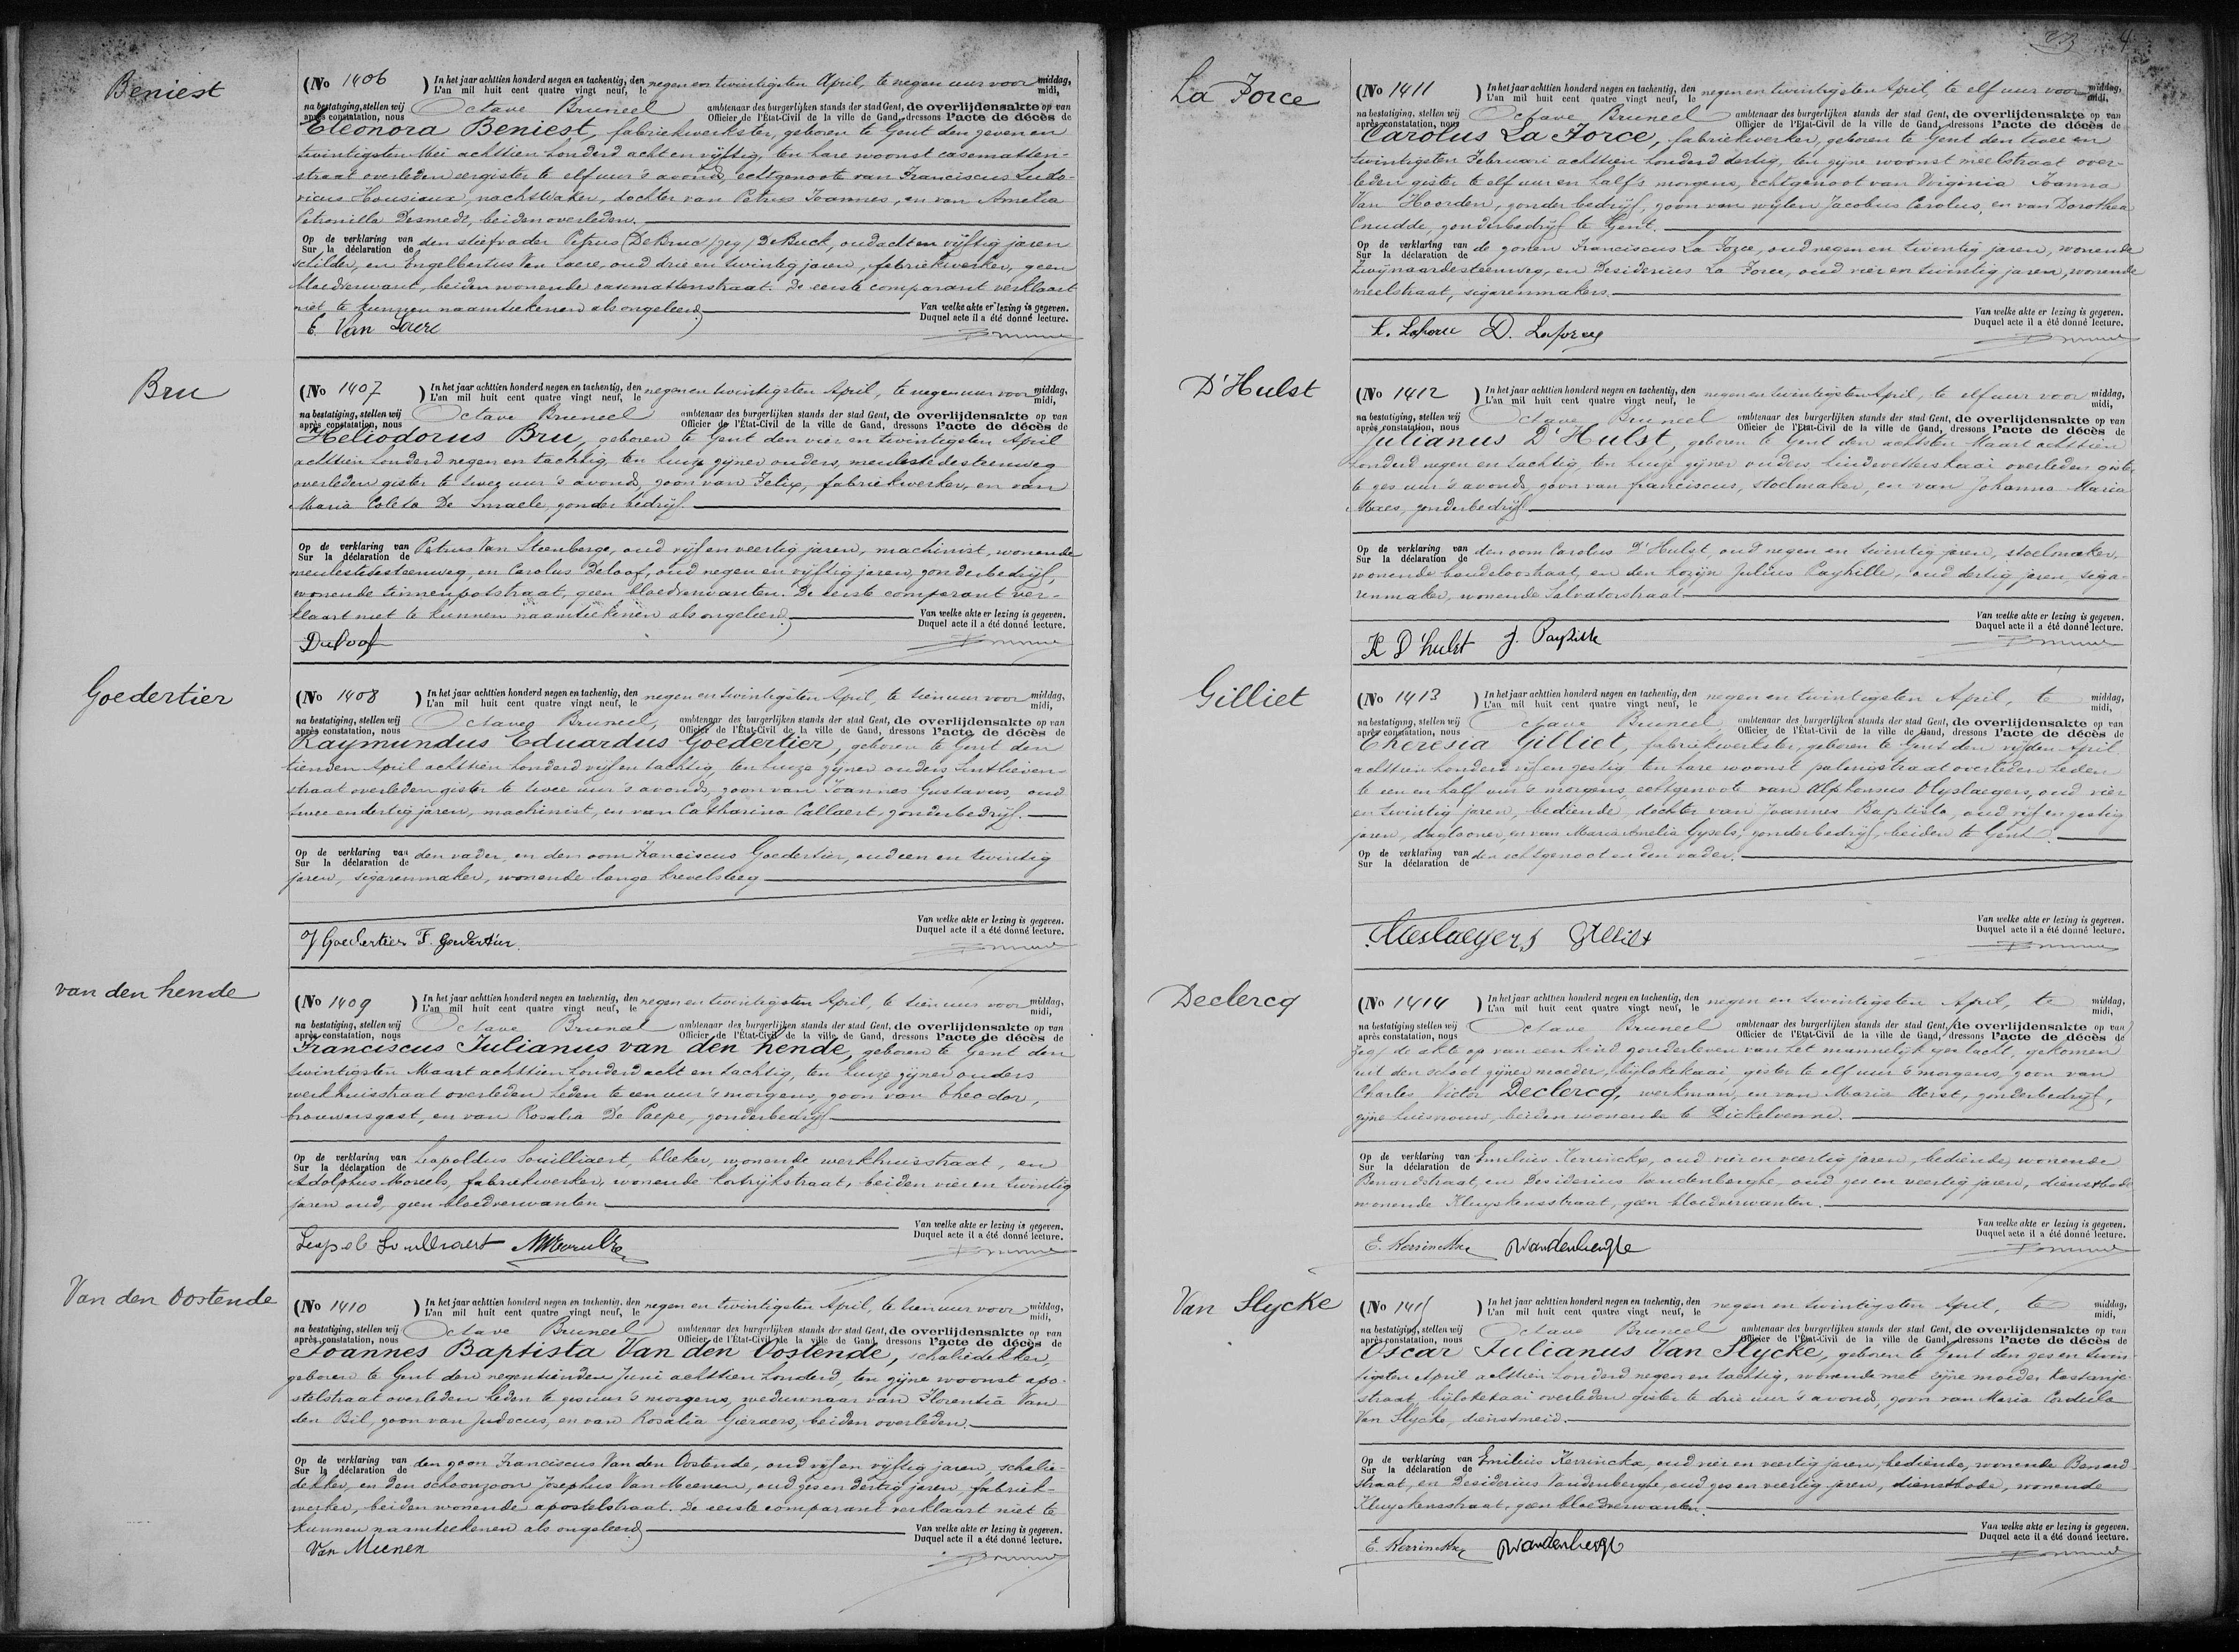 Beniest
(No 1406 ) In het jaar achttien honderd negen en tachentig, den negen en twintigsten April, te negen uur voor middag,
L'an mil huit cent quatre vingt neuf, le midi,
na bestatiging, stellen wij Octave Bruneel ambtenaar des burgerlijken stands der stad Gent, de overlijdensakte op van
après constatation, nous Officier de l'État-Civil de la ville de Gand, dressons l'acte de décès de
Eleonora Beniest, fabriekwerkster, geboren te Gent den zeven en
twintigsten Mei achttien honderd acht en vijftig, ten hare woonst casematten-
straat overleden eergister te elf uur 's avonds, echtgenoote van Franciscus Ludo-
vicus Housiaux, nachtwaker, dochter van Petrus Joannes, en van Amelia
Petronilla Desmedt, beiden overleden.
Op de verklaring van den stiefvader Petrus (DeBruc/zeg/DeBuck, oud acht en vijftig jaren
Sur la déclaration de
schilder, en Engelbertus Van Laere, oud drie en twintig jaren, fabriekwerker, geen
bloedverwant, beiden wonende casemattenstraat. De eerste comparant verklaart
niet te kunnen naamteekenen als ongeleerd
Van welke akte er lezing is gegeven.
Duquel acte il a été donné lecture.
E. Van Laere
Bru
(No 1407 ) In het jaar achttien honderd negen en tachentig, den negen en twintigsten April, te negen uur voor middag,
L'an mil huit cent quatre vingt neuf, le midi,
na bestatiging, stellen wij Octave Bruneel ambtenaar des burgerlijken stands der stad Gent, de overlijdensakte op van
après constatation, nous Officier de l'État-Civil de la ville de Gand, dressons l'acte de décès de
Heliodorus Bru, geboren te Gent den vier en twintigsten April
achttien honderd negen en tachtig, ten huize zijner ouders, meulestedesteenweg
overleden gister te twee uur 's avonds, zoon van Felix, fabriekwerker, en van
Maria Coleta De Smaele, zonder bedrijf.
Op de verklaring van Petrus Van Steenberge, oud vijf en veertig jaren, machinist, wonende
Sur la déclaration de
meulestedesteenweg, en Carolus Deloof, oud negen en vijftig jaren, zonderbedrijf,
wonende tinnenpotstraat, geen bloedverwanten. De eerste comparant ver-
klaart niet te kunnen naamteekenen als ongeleerd
Van welke akte er lezing is gegeven.
Duquel acte il a été donné lecture.
Deloof
Goedertier
(No 1408 ) In het jaar achttien honderd negen en tachentig, den negen en twintigsten April, te tien uur voor middag,
L'an mil huit cent quatre vingt neuf, le midi,
na bestatiging, stellen wij Octave Bruneel, ambtenaar des burgerlijken stands der stad Gent, de overlijdensakte op van
après constatation, nous Officier de l'État-Civil de la ville de Gand, dressons l'acte de décès de
Raymundus Eduardus Goedertier, geboren te Gent den
tienden April achttien honderd vijf en tachtig, ten huize zijner ouders Sintlieven-
straat overleden gister te twee uur 's avonds, zoon van Joannes Gustavus, oud
twee en dertig jaren, machinist, en van Catharina Callaert, zonderbedrijf.
Op de verklaring van den vader, en den oom Franciscus Goedertier, oud een en twintig
Sur la déclaration de
jaren, sigarenmaker, wonende lange krevelsteeg
Van welke akte er lezing is gegeven.
Duquel acte il a été donné lecture.
J Goedertier F. Goedertier.
van den hende
(No 1409 ) In het jaar achttien honderd negen en tachentig, den negen en twintigsten April, te tien uur voor middag,
L'an mil huit cent quatre vingt neuf, le midi,
na bestatiging, stellen wij Octave Bruneel ambtenaar des burgerlijken stands der stad Gent, de overlijdensakte op van
après constatation, nous Officier de l'État-Civil de la ville de Gand, dressons l'acte de décès de
Franciscus Julianus van den hende, geboren te Gent den
twintigsten Maart achttien honderd acht en tachtig, ten huize zijner ouders
werkhuisstraat overleden heden te een uur 's morgens, zoon van Theodor,
brouwersgast, en van Rosalia De Paepe, zonderbedrijf
Op de verklaring van Leopoldus Souilliaert, bleker, wonende werkhuisstraat, en
Sur la déclaration de
Adolphus Moreels, fabriekwerker, wonende Kortrijkstraat, beiden vier en twintig
jaren oud, geen bloedverwanten
Van welke akte er lezing is gegeven.
Duquel acte il a été donné lecture.
Van den Oostende
(No 1410 ) In het jaar achttien honderd negen en tachentig, den negen en twintigsten April, te tien uur voor middag,
L'an mil huit cent quatre vingt neuf, le midi,
na bestatiging, stellen wij Octave Bruneel ambtenaar des burgerlijken stands der stad Gent, de overlijdensakte op van
après constatation, nous Officier de l'État-Civil de la ville de Gand, dressons l'acte de décès de
Joannes Baptista Van den Oostende, schaliedekker,
geboren te Gent den negentienden Juni achttien honderd, ten zijne woonst apo-
stelstraat overleden heden te zes uur 's morgens, weduwnaar van Florentia Van
den Bil, zoon van Judocus, en van Rosalia Gieraers, beiden overleden.
Op de verklaring van den zoon Franciscus Van den Oostende, oud vijf en vijftig jaren, schalie-
Sur la déclaration de
dekker, en den schoonzoon Josephus Van Meenen, oud zes en dertig jaren, fabriek-
werker, beiden wonende apostelstraat. De eerste comparant verklaart niet te
kunnen naamteekenen als ongeleerd
Van welke akte er lezing is gegeven.
Duquel acte il a été donné lecture.
Van Meenen
4
La Force
(No 1411 ) In het jaar achttien honderd negen en tachentig, den negen en twintigsten April, te elf uur voor middag,
L'an mil huit cent quatre vingt neuf, le midi,
na bestatiging, stellen wij Octave Bruneel ambtenaar des burgerlijken stands der stad Gent, de overlijdensakte op van
après constatation, nous Officier de l'État-Civil de la ville de Gand, dressons l'acte de décès de
Carolus La Force, fabriekwerker, geboren te Gent den twee en
twintigsten Februari achttien honderd dertig, ten zijne woonst meelstraat over-
leden gister te elf uur en half 's morgens, echtgenoot van Virginia Joanna
Van Hoorden, zonder bedrijf, zoon van wijlen Jacobus Carolus, en van Dorothea
Cnudde, zonderbedrijf te Gent.
Op de verklaring van de zonen Franciscus La Force, oud negen en twintig jaren, wonende
Sur la déclaration de
Zwijnaardesteenweg, en Desiderius La Force, oud vier en twintig jaren, wonende
meelstraat, sigarenmakers.
Van welke akte er lezing is gegeven.
Duquel acte il a été donné lecture.
D. Laforce
D'Hulst
(No 1412 ) In het jaar achttien honderd negen en tachentig, den negen en twintigsten April, te elf uur voor middag,
L'an mil huit cent quatre vingt neuf, le midi,
na bestatiging, stellen wij Octave Bruneel ambtenaar des burgerlijken stands der stad Gent, de overlijdensakte op van
après constatation, nous Officier de l'État-Civil de la ville de Gand, dressons l'acte de décès de
Julianus D'Hulst, geboren te Gent den achtsten Maart achttien
honderd negen en tachtig, ten huize zijner ouders, huidevetterskaai overleden gister
te zes uur 's avonds, zoon van franciscus, stoelmaker, en van Johanna Maria
Maes, zonderbedrijf.
Op de verklaring van den oom Carolus D'Hulst, oud negen en twintig jaren, stoelmaker,
Sur la déclaration de
wonende baudeloostraat, en den kozijn Julius Payhille, oud dertig jaren, siga-
renmaker, wonende Salvatorstraat
Van welke akte er lezing is gegeven.
Duquel acte il a été donné lecture.
K D'hulst
Gilliet
(No 1413 ) In het jaar achttien honderd negen en tachentig, den negen en twintigsten April, te middag,
L'an mil huit cent quatre vingt neuf, le midi,
na bestatiging, stellen wij Octave Bruneel ambtenaar des burgerlijken stands der stad Gent, de overlijdensakte op van
après constatation, nous Officier de l'État-Civil de la ville de Gand, dressons l'acte de décès de
Theresia Gilliet, fabriekwerkster, geboren te Gent den vijfden April
achttien honderd vijf en zestig ten hare woonst palingstraat overleden heden
te een en half uur 's morgens, echtgenoote van Alphonsus Olyslaegers, oud vier
en twintig jaren, bediende, dochter van Joannes Baptista, oud vijf en zestig
jaren, daglooner, en van Maria Amelia Gysels, zonderbedrijf, beiden te Gent.
Op de verklaring van den echtgenoot en den vader.
Sur la déclaration de
Van welke akte er lezing is gegeven.
Duquel acte il a été donné lecture.
Gilliet
Declercq
(No 1414 ) In het jaar achttien honderd negen en tachentig, den negen en twintigsten April, te middag,
L'an mil huit cent quatre vingt neuf, le midi,
na bestatiging stellen wij Octave Bruneel ambtenaar des burgerlijken stands der stad Gent, de overlijdensakte op van
après constatation, nous Officier de l'État-Civil de la ville de Gand, dressons l'acte de décès de
zeg/ de akte op van een kind zonderleven van het mannelijk geslacht, gekomen
uit den schoot zijner moeder, bijlokekaai, gister te elf uur 's morgens, zoon van
Charles Victor Declercq, werkman, en van Maria Herst, zonderbedrijf,
zijne huisvrouw, beiden wonende te Dickelvenne.
Op de verklaring van Emilius Kerrinckx, oud vier en veertig jaren, bediende, wonende
Sur la déclaration de
Benardstraat, en Desiderius Vandenberghe, oud zes en veertig jaren, dienstbode
wonende Kluyskensstraat, geen bloedverwanten.
Van welke akte er lezing is gegeven.
Duquel acte il a été donné lecture.
E. Kerrinckx DVandenberghe
Van Slycke
(No 1415 ) In het jaar achttien honderd negen en tachentig, den negen en twintigsten April, te middag,
L'an mil huit cent quatre vingt neuf, le midi,
na bestatiging, stellen wij Octave Bruneel ambtenaar des burgerlijken stands der stad Gent, de overlijdensakte op van
après constatation, nous Officier de l'État-Civil de la ville de Gand, dressons l'acte de décès de
Oscar Julianus Van Slycke, geboren te Gent den zes en twin-
tigsten April achttien honderd negen en tachtig, wonende met zijne moeder kastanje-
straat, bijlokekaai overleden gister te drie uur 's avonds, zoon van Maria Cordula
Van Slycke, dienstmeid.
Op de verklaring van Emilius Kerrinckx, oud vier en veertig jaren, bediende, wonende Benard-
Sur la déclaration de
straat, en Desiderius Vandenberghe, oud zes en veertig jaren, dienstbode, wonende
Kluyskensstraat, geen bloedverwanten.
Van welke akte er lezing is gegeven.
Duquel acte il a été donné lecture.
E. Kerrinckx DVandenberghe